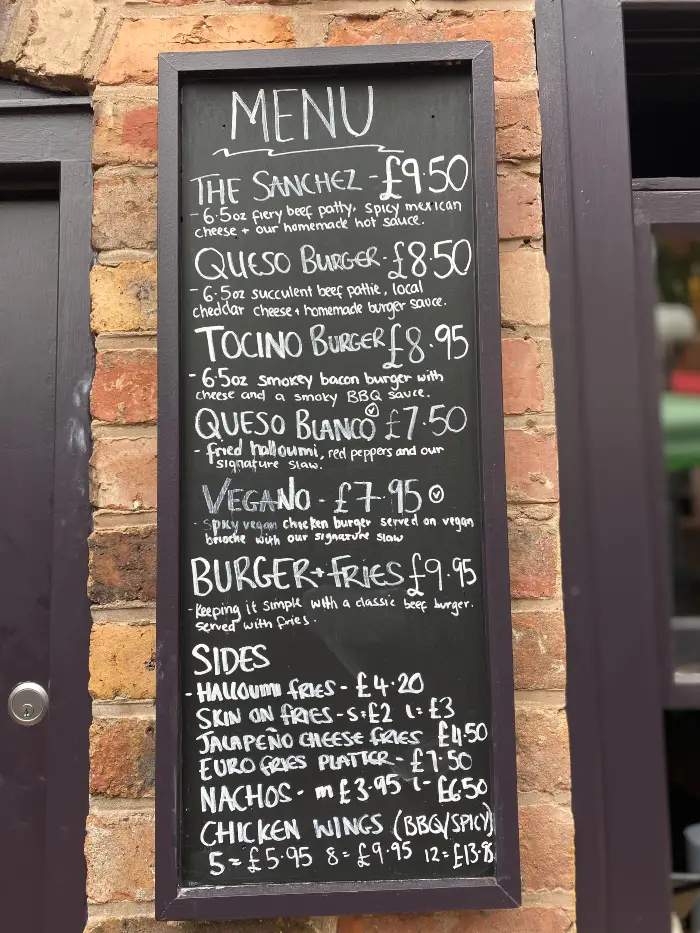 MENU
THE SANCHEZ - £9.50
- 6.5oz fiery beef patty, spicy mexican
cheese + our homemade hot sauce.
QUESO BURGER - £8.50
- 6.5oz succulent beef pattie, local
cheddar cheese + homemade burger sauce.
TOCINO BURGER £8.95
- 6.5oz smokey bacon burger with
cheese and a smoky BBQ sauce.
QUESO BLANCO Ⓥ £7.50
- fried halloumi, red peppers and our
signature slaw.
VEGANO - £7.95 Ⓥ
- spicy vegan chicken burger served on vegan
brioche with our signature slaw
BURGER + FRIES £9.95
- Keeping it simple with a classic beef burger.
served with fries.
SIDES
- HALLOUMI FRIES - £4.20
SKIN ON FRIES - S=£2 L=£3
JALAPEÑO CHEESE FRIES £4.50
EURO FRIES PLATTER - £7.50
NACHOS - m £3.95 L - £6.50
CHICKEN WINGS (BBQ/SPICY)
5=£5.95 8=£9.95 12=£13.95